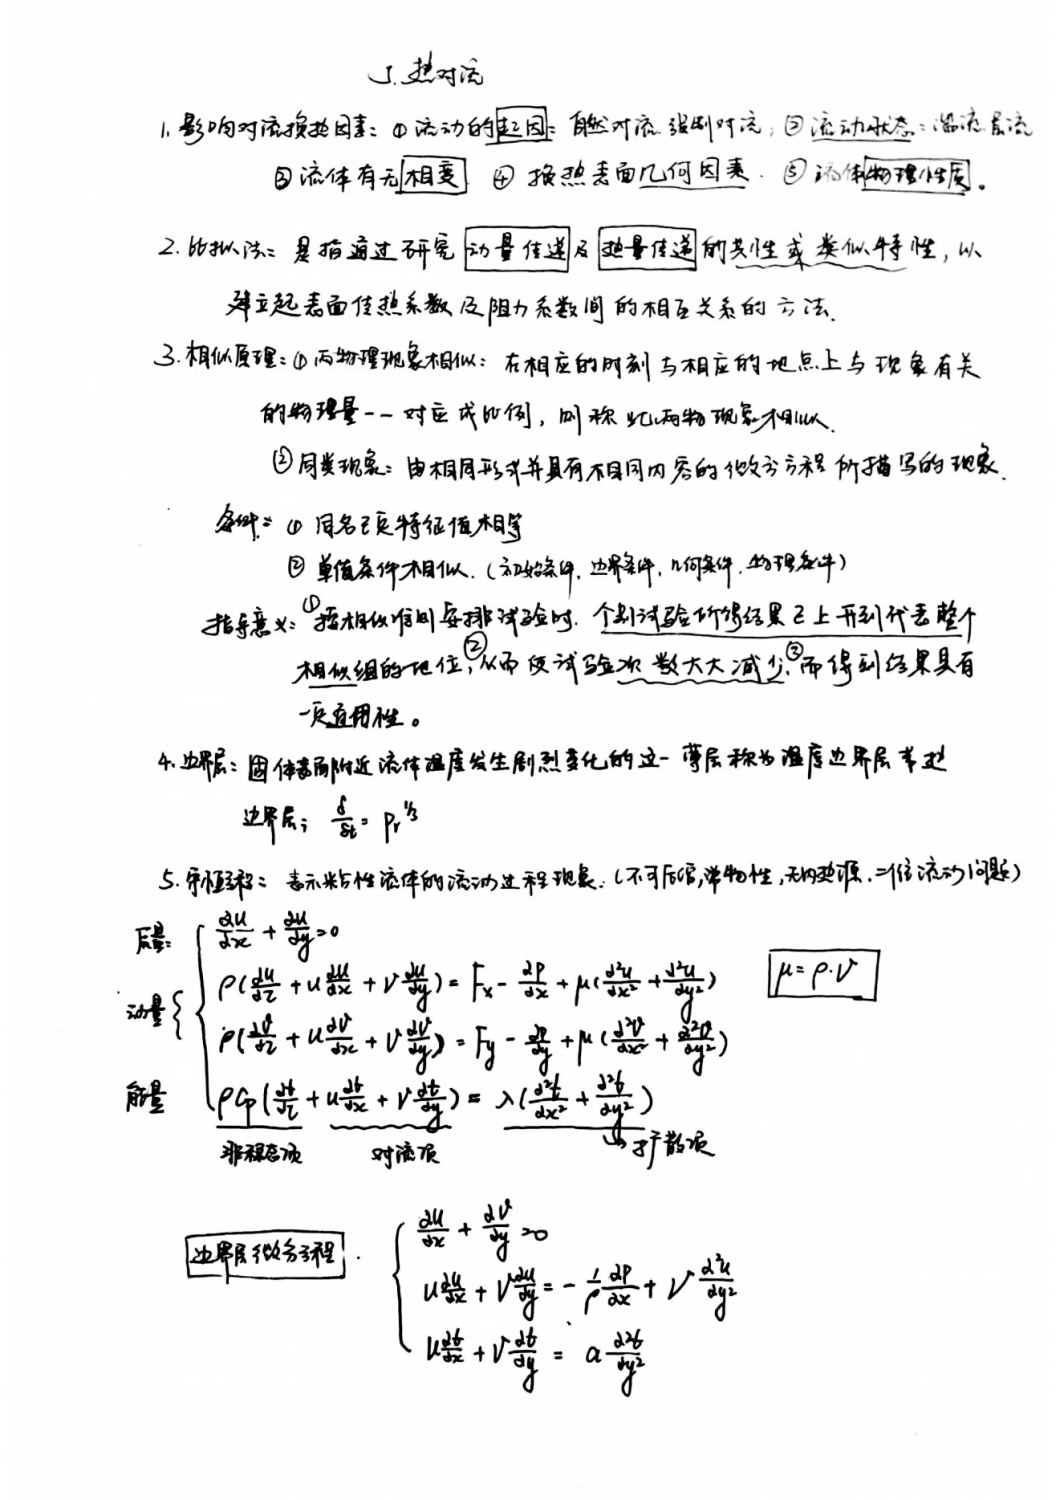 5.热对流
1.影响对流换热因素:①流动的起因:自然对流 强制对流;②流动状态:湍流 层流
③流体有无相变 ④换热表面几何因素.⑤流体物理性质。
2.比拟法:是指通过研究动量传递及热量传递的共性或类似特性,以
建立起表面传热系数及阻力系数间的相互关系的方法.
3.相似原理:①两物理现象相似:在相应的时刻与相应的地点上与现象有关
的物理量一一对应成比例,则称此两物现象相似.
②同类现象:由相同形式并具有相同内容的微分方程所描写的现象.
条件:①同名已定特征值相等
②单值条件相似.(初始条件,边界条件,几何条件,物理条件)
指导意义:①按相似准则安排试验时.个别试验所得结果已上升到代表整个
相似组的地位;②从而使试验次数大大减少,③而得到结果具有
一定通用性。
4.边界层:固体表面附近流体温度发生剧烈变化的这一薄层称为温度边界层或热
边界层; δ/δt = Pr^1/3
5.守恒方程:表示粘性流体的流动过程现象.(不可压缩,常物性,无内热源.二维流动问题)
质量: ∂u/∂x + ∂u/∂y = 0
动量{ ρ(∂u/∂τ + u∂u/∂x + v∂u/∂y) = Fx - ∂P/∂x + μ(∂²u/∂x² + ∂²u/∂y²) μ=ρ·ν
ρ(∂v/∂τ + u∂v/∂x + v∂v/∂y) = Fy - ∂P/∂y + μ(∂²v/∂x² + ∂²v/∂y²)
能量 ρCp(∂t/∂τ + u∂t/∂x + v∂t/∂y) = λ(∂²t/∂x² + ∂²t/∂y²)
非稳态项 对流项 →扩散项
边界层微分方程. ∂u/∂x + ∂v/∂y = 0
u∂u/∂x + v∂u/∂y = - 1/ρ ∂P/∂x + ν ∂²u/∂y²
u∂t/∂x + v∂t/∂y = a ∂²t/∂y²